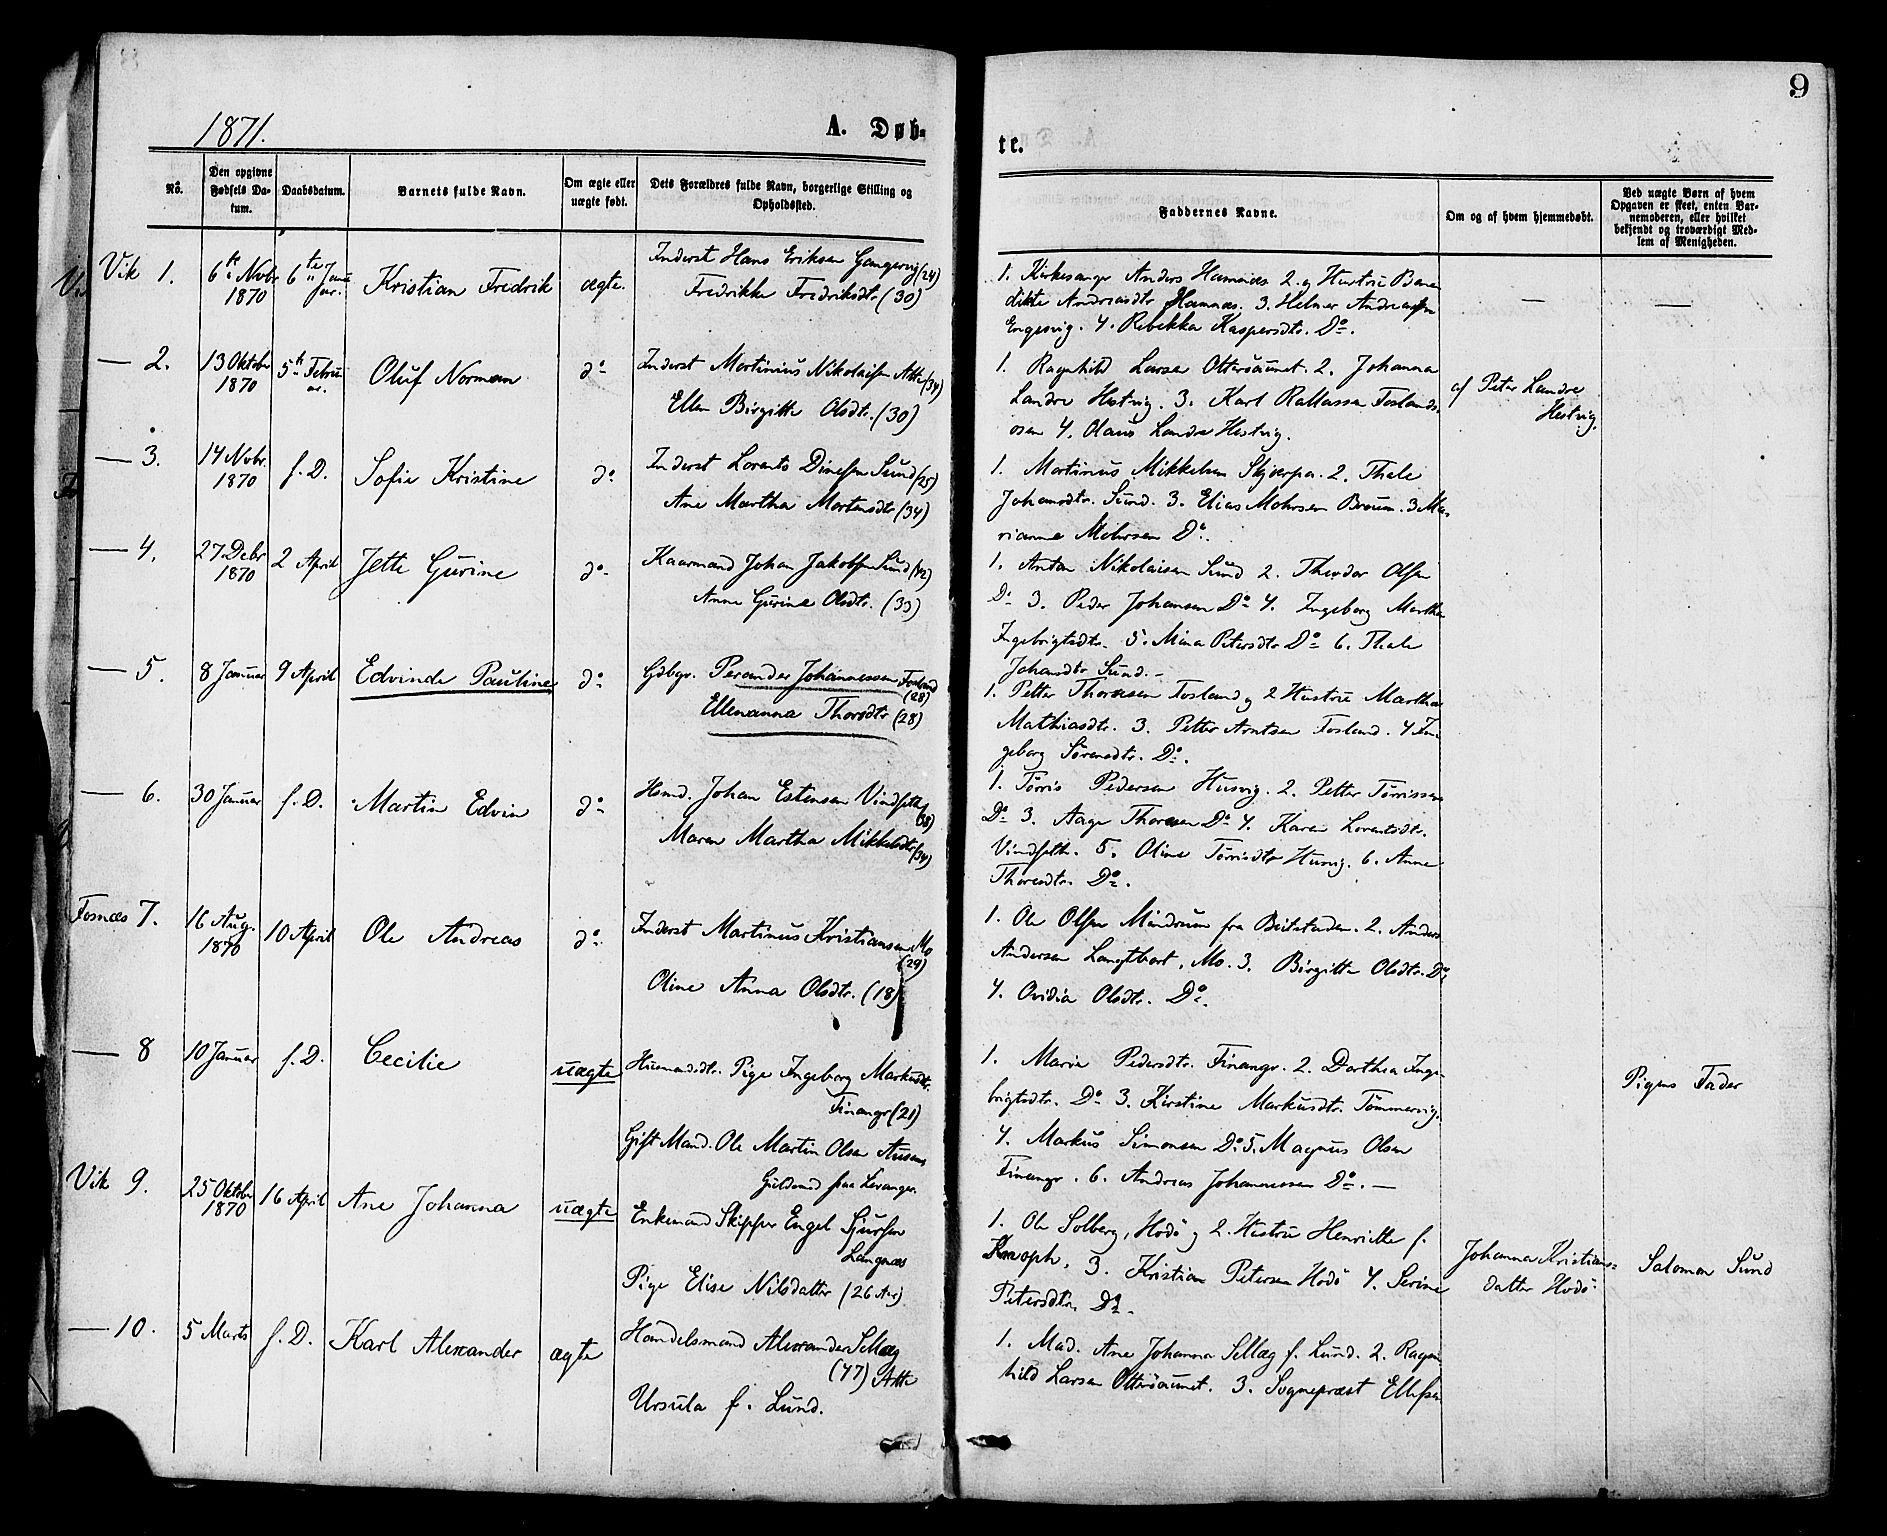 9
1871.
A. Døb-
te.
Nô.
Den opgivne Fødsels Da-tum.
Daabsdatum.
Barnets fulde Navn.
Om ægte eller uægte født.
Dets Forældres fulde Navn, borgerlige Stilling og Opholdssted.
Faddernes Navne.
Om og af hvem hjemmedøbt.
Ved uægte Børn af hvem Opgaven er skeet, enten Bar-nemoderen, eller hvilket bekjendt og troværdigt Med-lem af Menigheden.
Vik 1. 6te Novbr 1870 6te Januar. Kristian Fredrik ægte.
Inderst Hans Eriksen Gangsvig (24)
Fredrikke Fredriksdtr (30)
1. Kirkesanger Anders Hamnæs 2. og Hustru Bene
dikte Andreasdtr Hamnæs. 3. Helmer Andreassen
Engesvig. 4. Rebekka Kaspersdtr. Do.
— —
— 2. 13 Oktober 1870 5te Februar. Oluf Norman do
Inderst Martinius Nikolaisen Atte (34)
Ellen Birgitte Olsdtr. (30)
1. Ragnhild Larsen Ottersøunet. 2. Johanna
Landre Hestvig. 3. Karl Rallassen Foslands
osen 4. Olaus Landre Hestvig.
af Peter Landre
Hestvig.
— 3. 14 Novbr. 1870 s. D. Sofie Kristine do
Inderst Lorents Dinessen Sund (25)
Ane Martha Mortensdtr (34)
1. Martinus Mikkelsen Skjærpa. 2. Thale
Johansdtr. Sund. 3. Elias Mohrsen Braum. 3 Ma-
rianne Mohrsen Do.
— 4. 27 Debr 1870 2 April Jette Gurine do
Kaarmand Johan Jakobsen Sund (42)
Anne Gurine Olsdtr. (33)
1. Anton Nikolaisen Sund 2. Theodor Olsen
Do 3. Peder Johansen Do 4. Ingeborg Martha
Ingebrigtsdtr. 5. Mina Petersdtr Do 6. Thale
Johansdtr Sund. —
— 5. 8 Januar 9 April Edvinde Pauline do
Gdbgr. Perander Johannessen Fosland (28)
Ellenanna Thorsdtr (28)
1. Petter Thoresen Fosland og 2 Hustru Martha
Mathiasdtr. 3. Petter Arntsen Fosland. 4 In
geborg Sørensdtr. Do.
— 6. 30 Januar s. D. Martin Edvin do
Hsmd. Johan Estensen Vindseth (38)
Maren Martha Mikkelsdtr (34)
1. Tørris Pedersen Husvig. 2. Petter Tørrissen
Do 3. Aage Thoresen Do 4. Karen Lorentsdtr.
Vindseth. 5. Oline Tørrisdtr Husvig. 6. Anne
Thoresdtr. Do.
Fosnæs 7. 16 Aug. 1870 10 April Ole Andreas do
Inderst Martinus Kristiansen Mo (29)
Oline Anna Olsdtr. (18)
1. Ole Olsen Mindrum fra Beitstaden. 2. Anders
Andersen Langtbort, Mo. 3. Birgitte Olsdtr. Do
4. Ovidia Olsdtr. Do.
— 8 10 Januar s. D. Cecilie uægte
Husmandsdtr. Pige Ingeborg Markusdtr.
Finangr (21)
Gift Mand. Ole Martin Olsen Ausens
Guldsmed paa Levanger.
1. Marie Pedersdtr. Finangr. 2. Dorthea Inge-
brigtsdtr. Do 3. Kirstine Markusdtr. Tømmervig.
4. Markus Simonsen Do 5. Magnus Olsen
Finangr. 6. Andreas Johannessen Do. —
Pigens Fader
Vik 9. 25 Oktober 1870 16 April Ane Johanna uægte
Enkemand Skipper Engel Sjursen
Langnæs
Pige Elise Nilsdatter (26 Aar)
1. Ole Solberg, Hodø og 2. Hustru Henriette f.
Knoph. 3. Kristian Petersen Hodø 4. Serine
Petersdtr. Do.
Johanna Kristians-
datter Hodø
Salomon Sund
— 10. 5 Marts s. D. Karl Alexander ægte
Handelsmand Alexander Sellæg
(47) Atte
Ursula f. Lund.
1. Mad. Ane Johanna Sellæg f. Lund. 2. Ragn
hild Larsen Ottersøunet. 3. Sogneprest Ellefsen